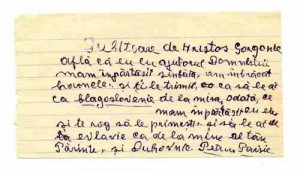 Iubitoare de Hristos
află că eu cu ajutorul Domnului
mam împărtășit sîmbătă, am îmbrăcat
hainele, și ți le trimit, ca să le ai
ca blagoslovenie de la mine, odată, ce
mam împărtășit eu
și te rog să le primești și să le ai de
la evlavie ca de la mine al tău
Părinte, și Duhovnic Petru Paisie